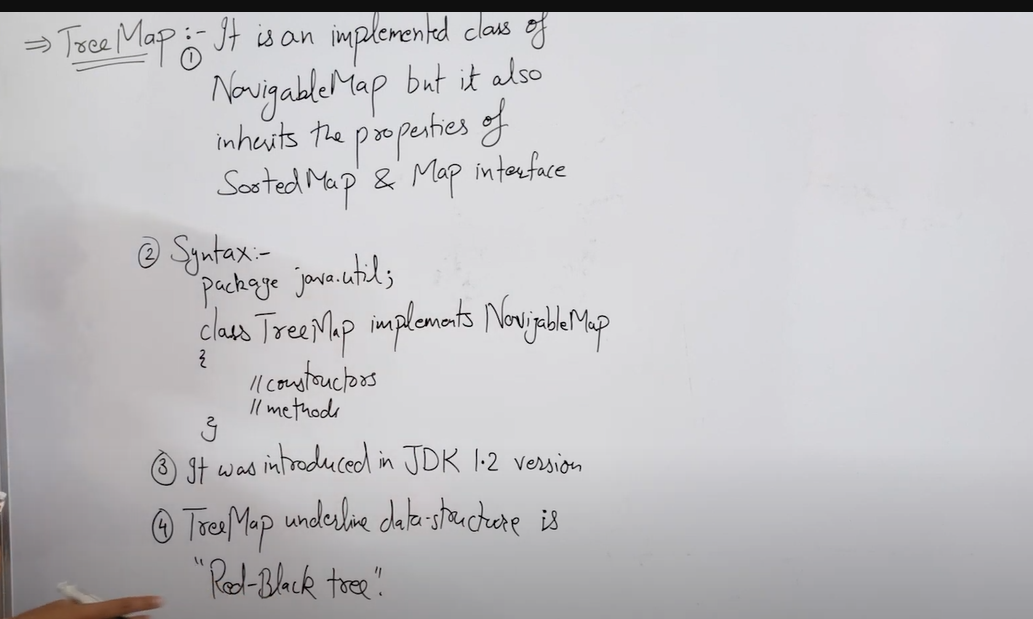 ⇒ TreeMap :- It is an implemented class of
① NavigableMap but it also
inherits the properties of
SortedMap & Map interface
② Syntax:-
package java.util;
class TreeMap implements NavigableMap
{
//constructors
//methods
}
③ It was introduced in JDK 1.2 version
④ TreeMap underline data-structure is
"Red-Black tree".